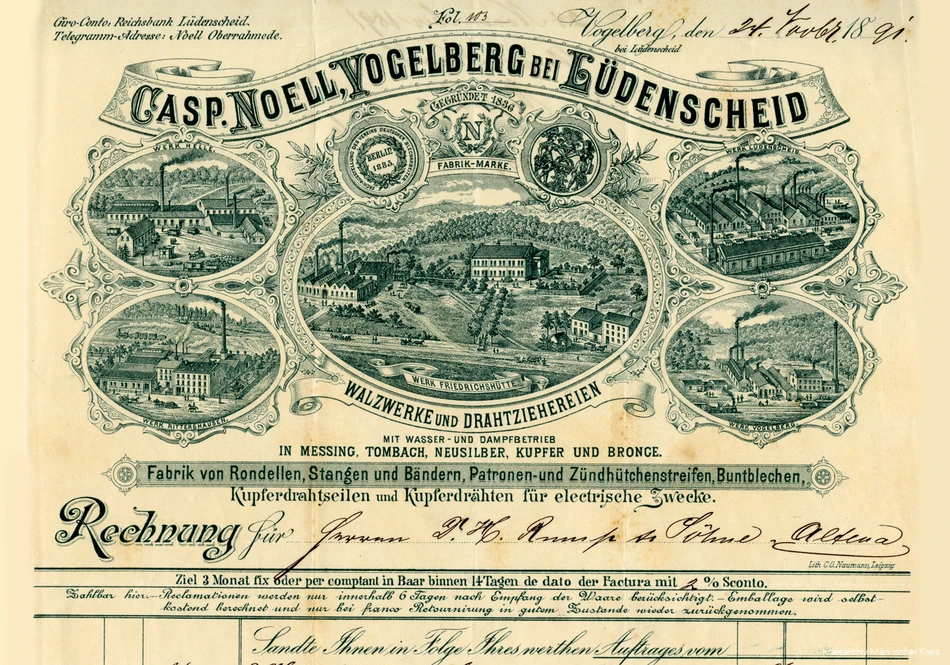 Giro-Conto: Reichsbank Lüdenscheid.
Telegramm-Adresse: Noell Oberrahmede.
Fol. 103
Vogelberg, den 24. Novbr 1891.
bei Lüdenscheid
CASP. NOELL, VOGELBERG BEI LÜDENSCHEID
GEGRÜNDET 1836
N
FABRIK-MARKE.
BERLIN
1883.
WERK HELLE.
WERK LÜDENSCHEID.
WERK FRIEDRICHSHÜTTE
WERK RITTERSHAUSEN.
WERK VOGELBERG.
WALZWERKE UND DRAHTZIEHEREIEN
MIT WASSER- UND DAMPFBETRIEB
IN MESSING, TOMBACH, NEUSILBER, KUPFER UND BRONCE.
Fabrik von Rondellen, Stangen und Bändern, Patronen- und Zündhütchenstreifen, Buntblechen,
Kupferdrahtseilen und Kupferdrähten für electrische Zwecke.
Rechnung für Herren D. H. Rumpe & Söhne Altena
Lith. C.G. Naumann, Leipzig
Ziel 3 Monat fix oder per comptant in Baar binnen 14 Tagen de dato der Factura mit 2 % Sconto.
Zahlbar hier.- Reclamationen werden nur innerhalb 6 Tagen nach Empfang der Waare berücksichtigt.- Emballage wird selbst-
kostend berechnet und nur bei franco Retournirung in gutem Zustande wieder zurückgenommen.
Sandte Ihnen in Folge Ihres werthen Auftrages vom
Kreisarchiv Märkischer Kreis